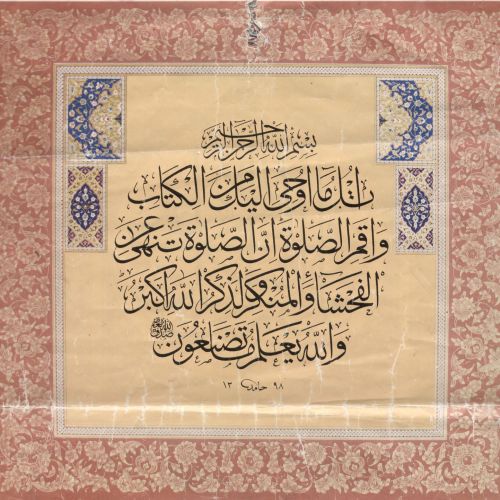 بسم الله الرحمن الرحيم
اتل ما اوحى اليك من الكتاب
واقم الصلوة ان الصلوة تنهى عن
الفحشاء والمنكر ولذكر الله اكبر
والله يعلم ما تصنعون
حامد ١٣٩٨